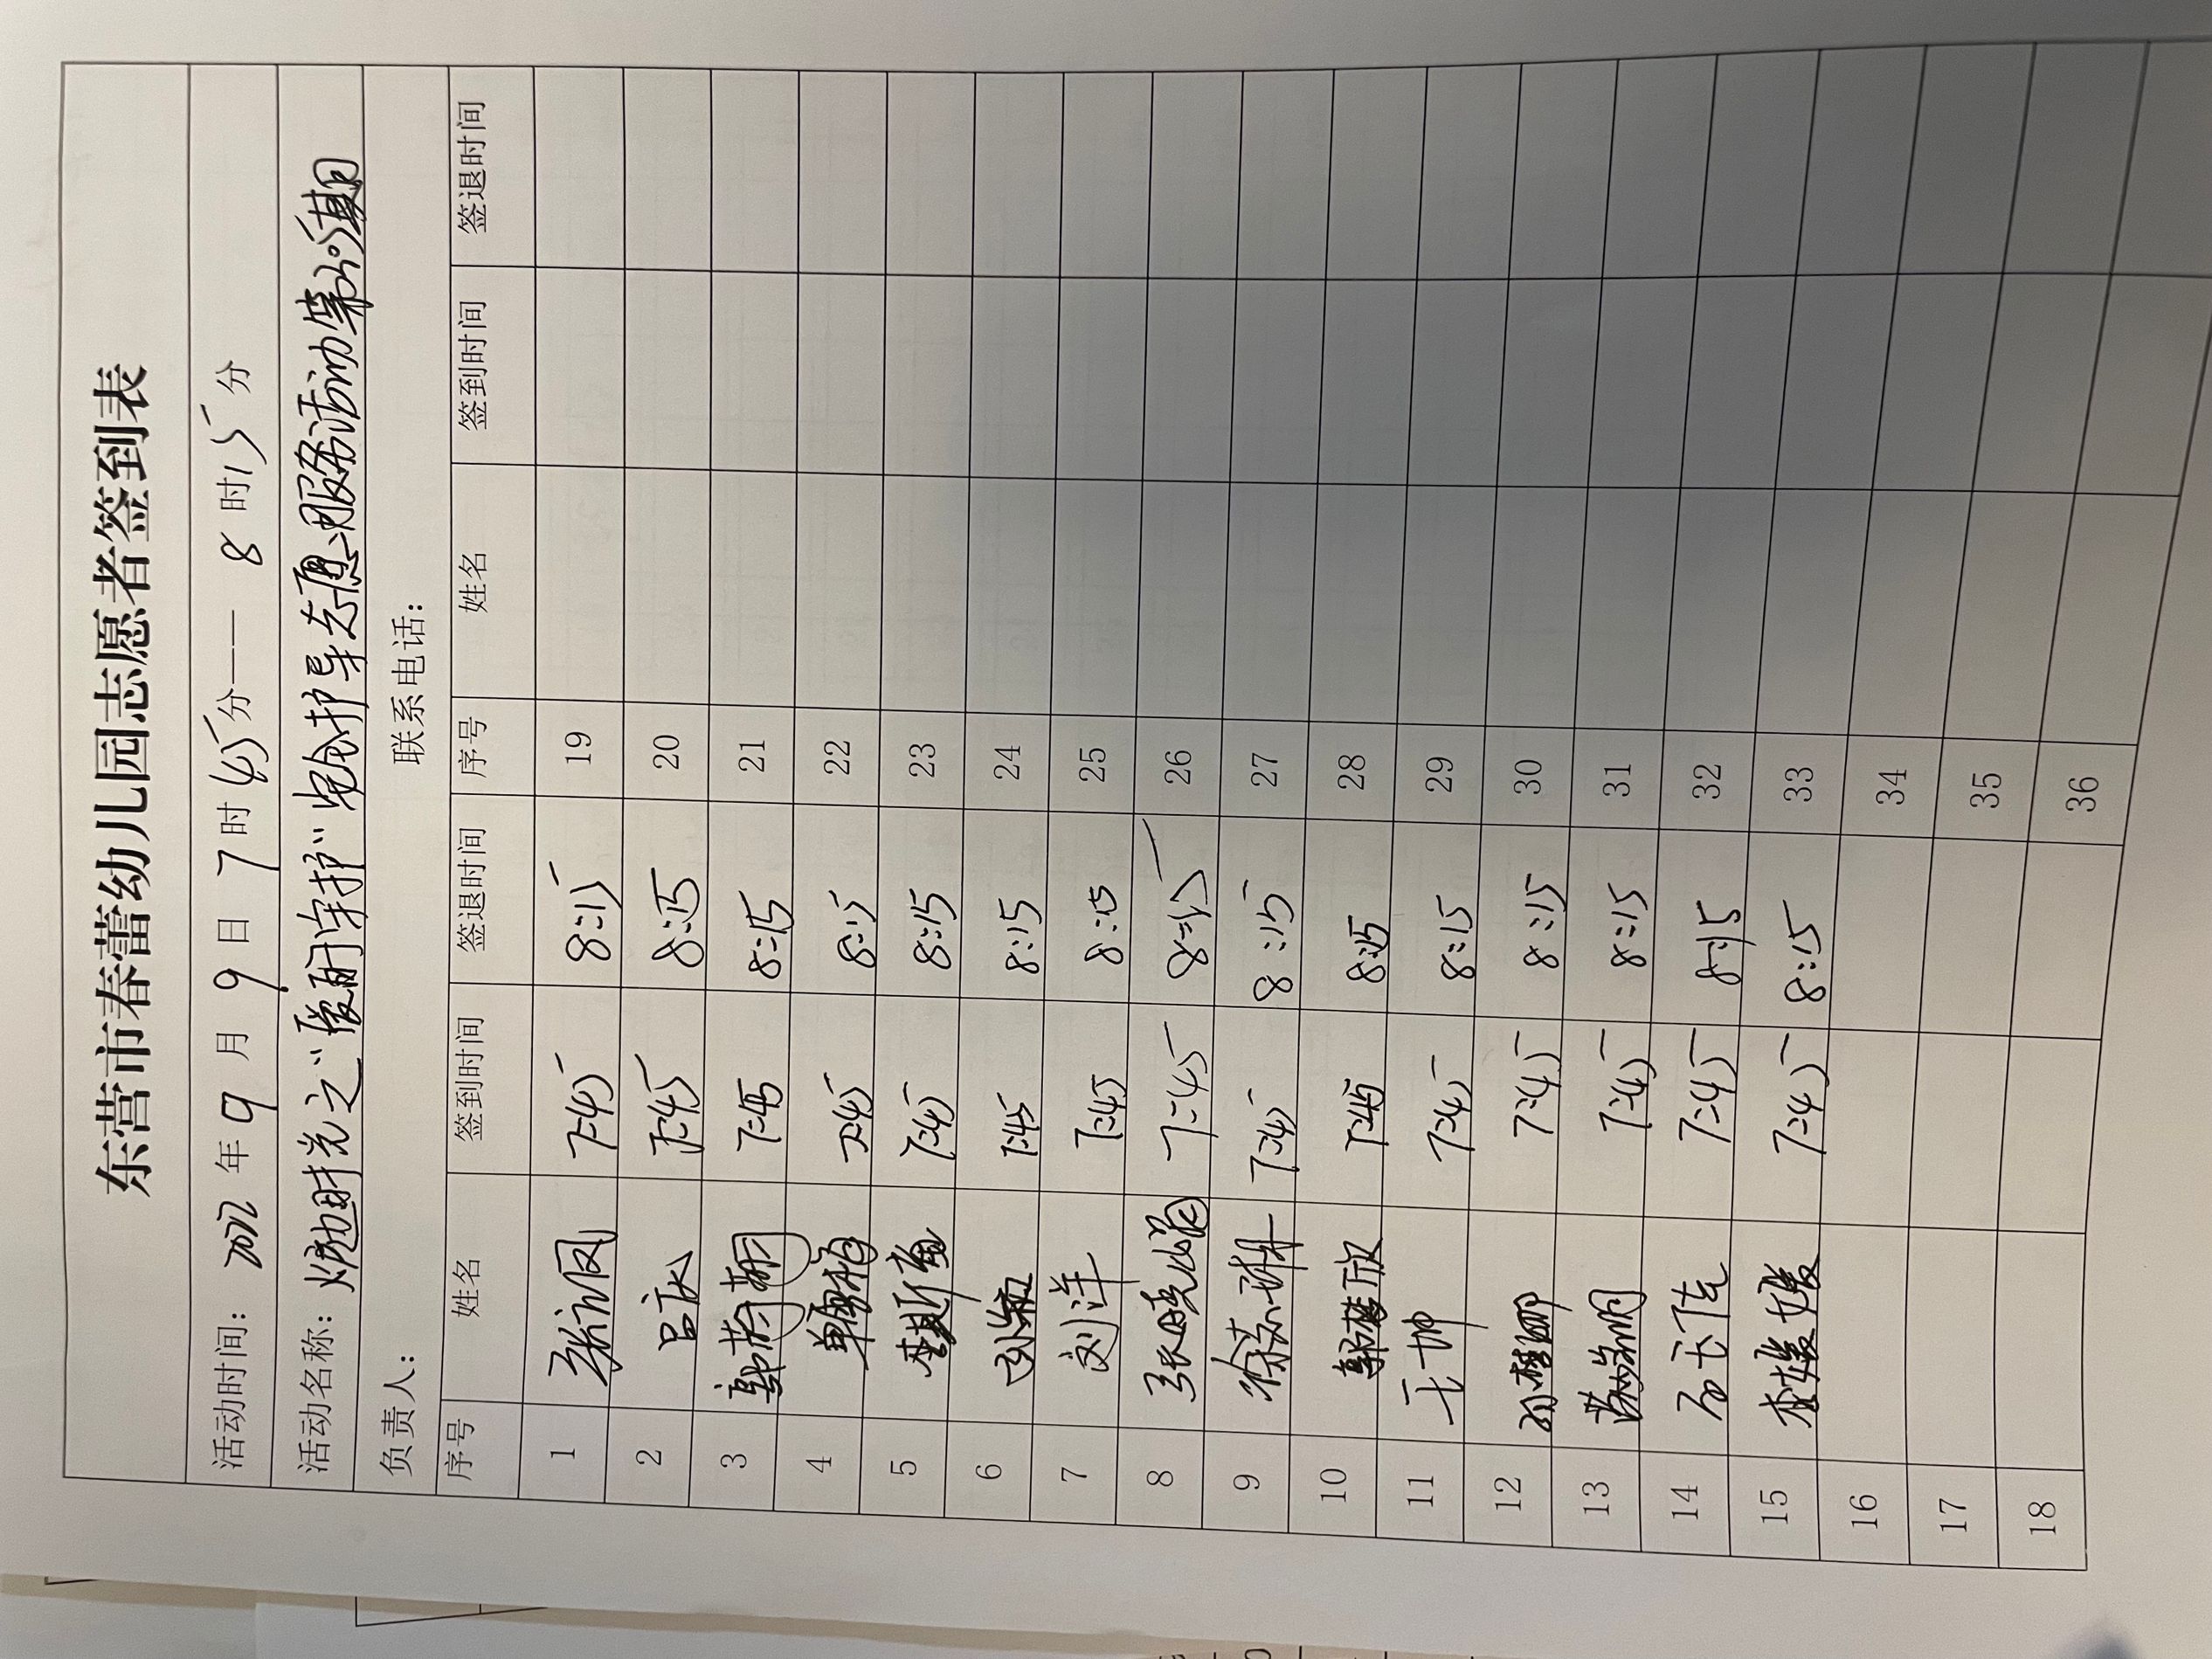 东营市春蕾幼儿园志愿者签到表
活动时间: 2022 年 9 月 9 日 7 时 45 分—— 8 时 15 分
活动名称: 燃动时光之"爱的守护"安全护导志愿服务活动
负责人: 联系电话:
序号 姓名 签到时间 签退时间 序号 姓名 签到时间 签退时间
1 7:45 8:15 19
2 吕庆 7:45 8:15 20
3 7:45 8:15 21
4 7:45 8:15 22
5 7:45 8:15 23
6 7:45 8:15 24
7 刘洋 7:45 8:15 25
8 7:45 8:15 26
9 7:45 8:15 27
10 7:45 8:15 28
11 王坤 7:45 8:15 29
12 7:45 8:15 30
13 7:45 8:15 31
14 7:45 8:15 32
15 李媛媛 7:45 8:15 33
16 34
17 35
18 36